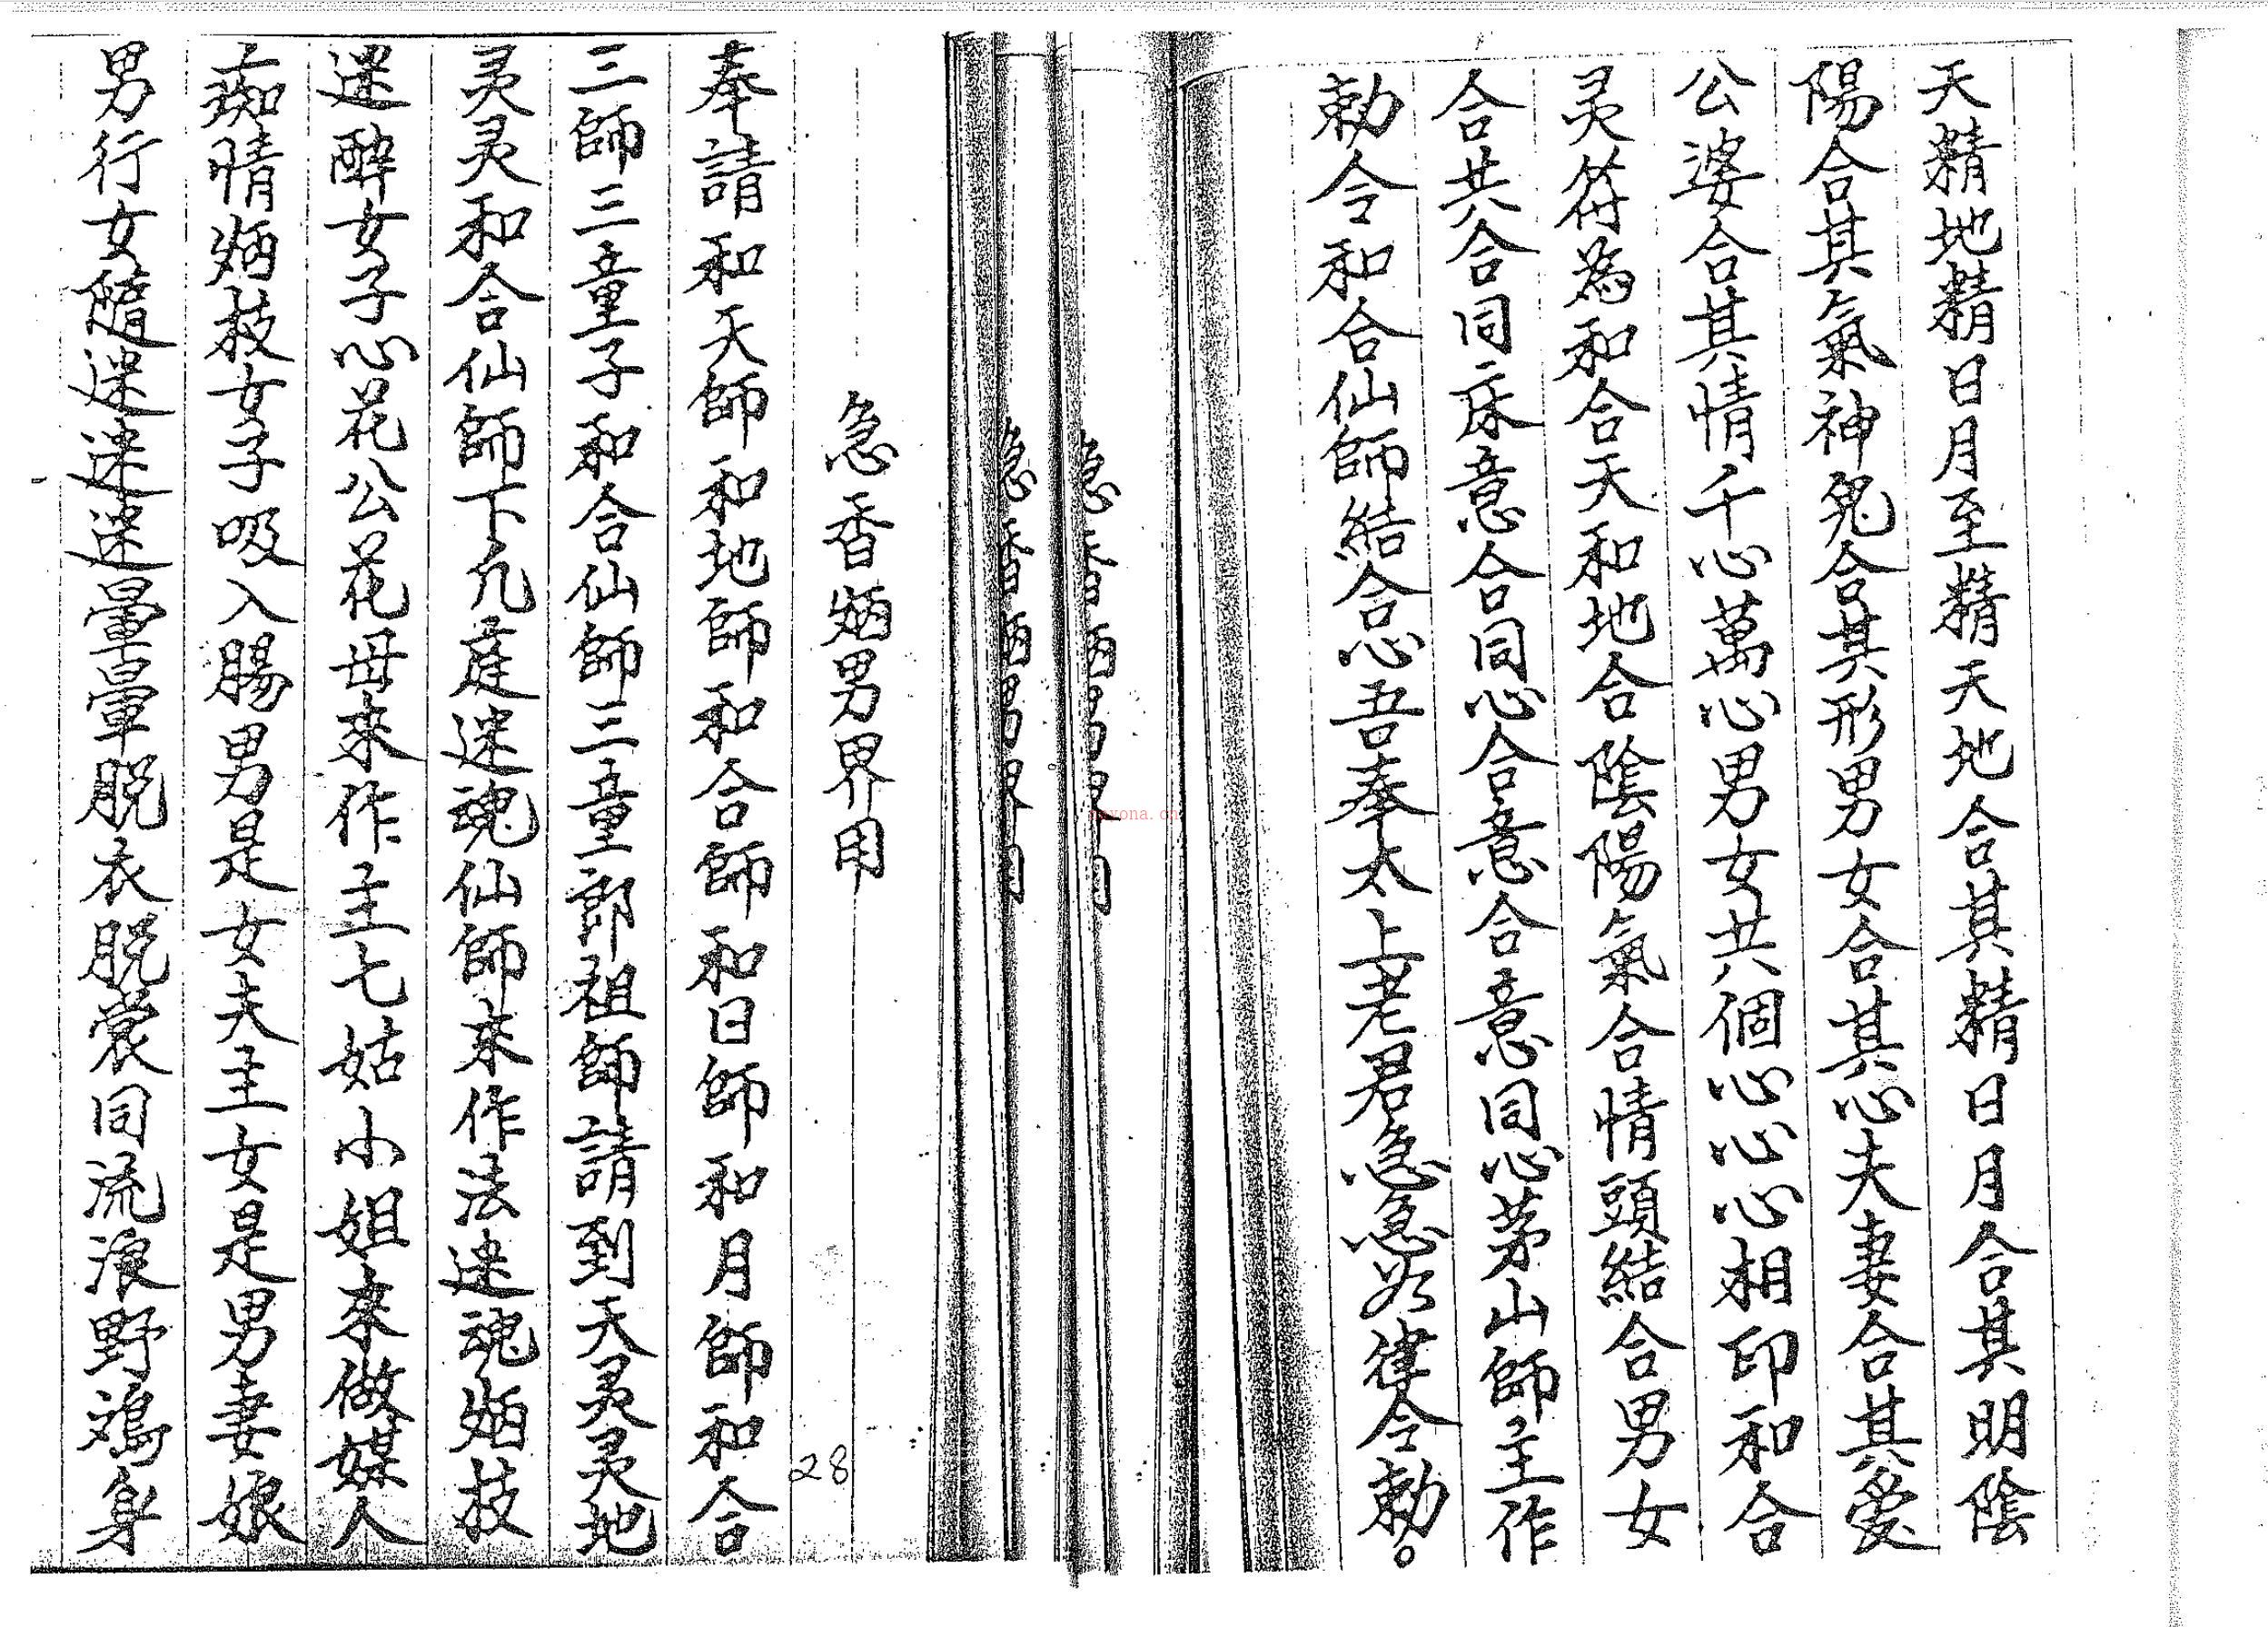 天精地精日月至精天地合其精日月合其明陰
陽合其氣神鬼合其形男女合其心夫妻合其愛
公婆合其情千心萬心男女共個心心心相印和合
灵符為和合天和地合陰陽氣合情頭結合男女
合共合同床意合同心合意合意同心茅山師主作
勅令和合仙師結合心吾奉太上老君急急如律令勅。
急香烟男界用
28
奉請和天師和地師和合師和日師和月師和合
三師三童子和合仙師三童郎祖師請到天灵灵地
灵灵和合仙師下凡庭迷魂仙師來作法迷魂烟技
迷醉女子心花公花母來作主七姑小姐來做媒人
痴情烟技女子吸入腸男是女夫主女是男妻娘
男行女隨迷迷迷暈暈脱衣脱裳同流浪野鴻身